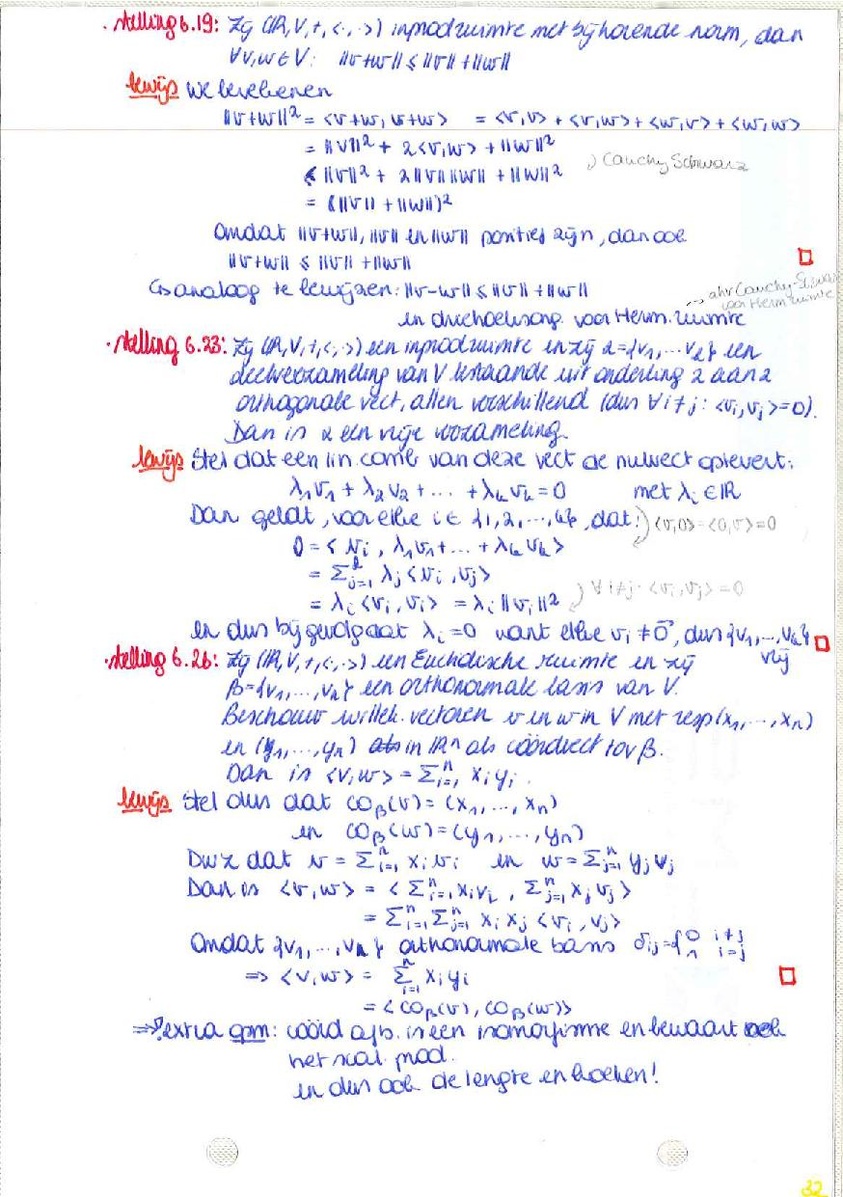 · stelling 6.19: Zij (ℝ,V,+,<·,·>) inprodruimte met bijhorende norm, dan
∀v,w ∈ V: ||v+w|| ≤ ||v|| + ||w||
bewijs We berekenen
||v+w||² = <v+w, v+w> = <v,v> + <v,w> + <w,v> + <w,w>
= ||v||² + 2<v,w> + ||w||²
≤ ||v||² + 2||v|| ||w|| + ||w||² ) Cauchy Schwarz
= (||v|| + ||w||)²
Omdat ||v+w||, ||v|| en ||w|| positief zijn, dan ook
||v+w|| ≤ ||v|| + ||w|| □
↳ analoog te bewijzen: ||v-w|| ≤ ||v|| + ||w||
en driehoeksong. voor Herm. ruimte
ahv Cauchy-Schwarz
voor Herm ruimte
· stelling 6.23: Zij (ℝ,V,+,<·,·>) een inprodruimte en zij α={v₁,...vₖ} een
deelverzameling van V bestaande uit onderling 2 aan 2
orthogonale vect, allen verschillend (dus ∀i≠j: <vᵢ,vⱼ>=0).
Dan is α een vrije verzameling.
bewijs Stel dat een lin. comb van deze vect de nulvect oplevert:
λ₁v₁ + λ₂v₂ + ... + λₖvₖ = 0 met λᵢ ∈ ℝ
Dan geldt, voor elke i ∈ {1,2,...,k}, dat: ) <v,0>=<0,v>=0
0 = <vᵢ, λ₁v₁+...+λₖvₖ>
= Σʲ₌₁ᵏ λⱼ<vᵢ,vⱼ>
= λᵢ<vᵢ,vᵢ> = λᵢ||vᵢ||² ) ∀i≠j: <vᵢ,vⱼ>=0
en dus bijgevolg aat λᵢ=0 want elke vᵢ≠0⃗, dus {v₁,...,vₖ} □
vrij
· stelling 6.26: Zij (ℝ,V,+,<·,·>) een Euclidische ruimte en zij
β={v₁,...,vₙ} een orthonormale basis van V.
Beschouw willek. vectoren v en w in V met resp (x₁,...,xₙ)
en (y₁,...,yₙ) als in ℝⁿ als coördvect tov β.
Dan is <v,w> = Σⁿᵢ₌₁ xᵢyᵢ.
bewijs Stel dus dat co_β(v) = (x₁,...,xₙ)
en co_β(w) = (y₁,...,yₙ)
Dwz dat v = Σⁿᵢ₌₁ xᵢvᵢ en w = Σⁿⱼ₌₁ yⱼvⱼ
Dan is <v,w> = <Σⁿᵢ₌₁ xᵢvᵢ, Σⁿⱼ₌₁ xⱼvⱼ>
= Σⁿᵢ₌₁ Σⁿⱼ₌₁ xᵢxⱼ <vᵢ,vⱼ>
Omdat {v₁,...,vₙ} orthonormale basis δᵢⱼ={0 i≠j 1 i=j
⇒ <v,w> = Σⁿᵢ₌₁ xᵢyᵢ □
= <co_β(v), co_β(w)>
⇒ extra opm: coörd afb. is een isomorfisme en bewaart ook
het scal. prod.
en dus ook de lengte en hoeken!
32